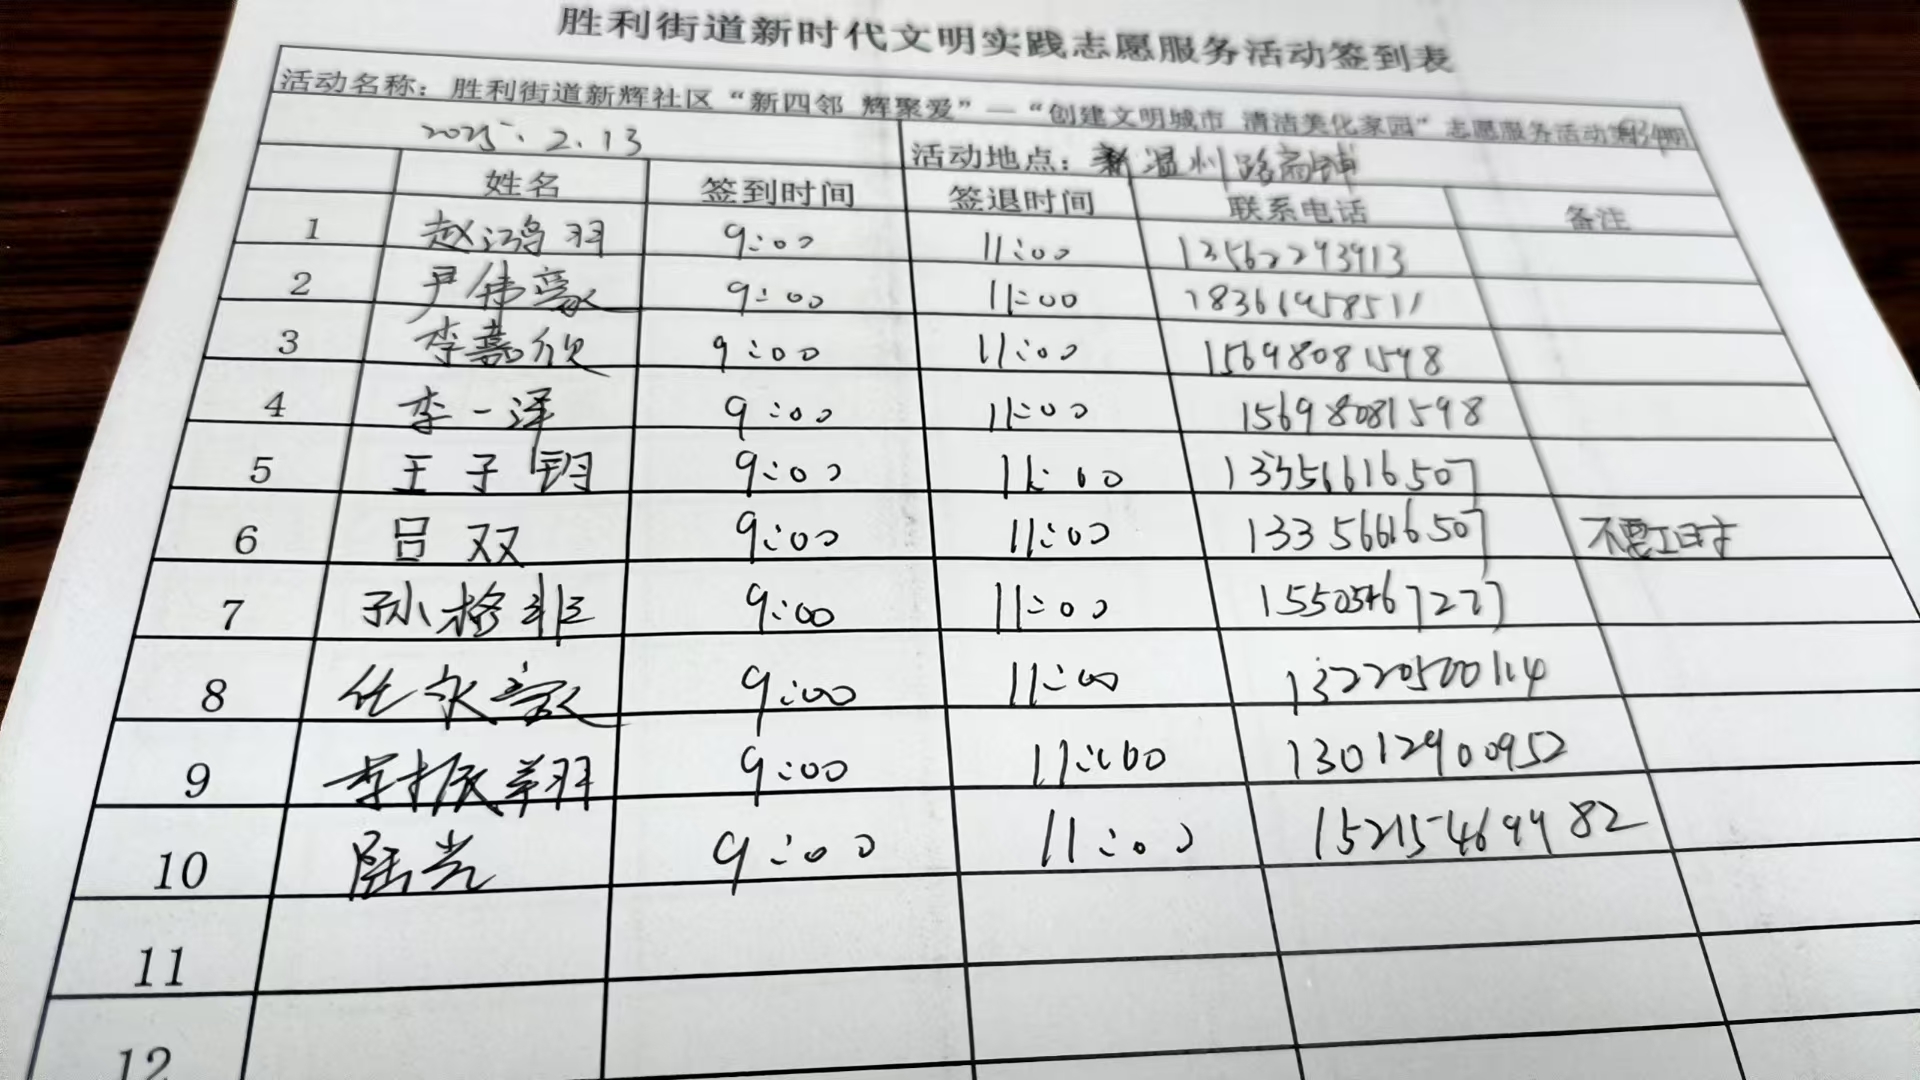 胜利街道新时代文明实践志愿服务活动签到表
活动名称：胜利街道新辉社区“新四邻 辉聚爱”—“创建文明城市 清洁美化家园”志愿服务活动第 期
2025.2.13 活动地点：新温州路商铺
姓名 签到时间 签退时间 联系电话 备注
1 赵鸿羽 9:00 11:00 13562293913
2 尹伟豪 9:00 11:00 18361958511
3 李嘉欣 9:00 11:00 15698081598
4 李一泽 9:00 11:00 15698081598
5 王子钥 9:00 11:00 13356616507
6 吕双 9:00 11:00 13356616507 不要工时
7 孙格非 9:00 11:00 15505467277
8 任永豪 9:00 11:00 13220500114
9 李振翔 9:00 11:00 13012900952
10 陆岩 9:00 11:00 15215469982
11
12